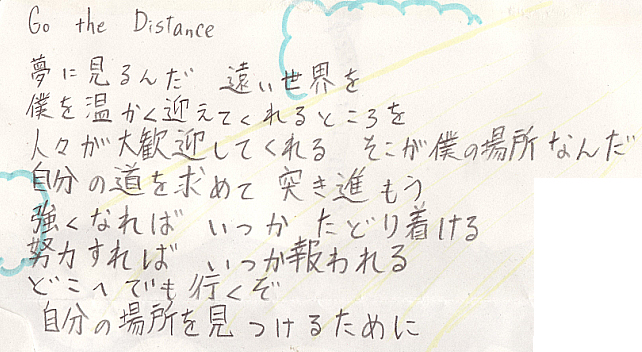 Go the Distance
夢に見るんだ 遠い世界を
僕を温かく迎えてくれるところを
人々が大歓迎してくれる そこが僕の場所なんだ
自分の道を求めて 突き進もう
強くなれば いつか たどり着ける
努力すれば いつか報われる
どこへでも行くぞ
自分の場所を見つけるために